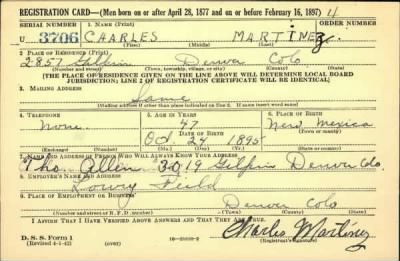 REGISTRATION CARD—(Men born on or after April 28, 1877 and on or before February 16, 1897) 4
SERIAL NUMBER 1. NAME (Print) ORDER NUMBER
U 3706 CHARLES MARTINEZ
(First) (Middle) (Last)
2. PLACE OF RESIDENCE (Print)
2857 Gilpin Denver Colo
(Number and street) (Town, township, village, or city) (County) (State)
[THE PLACE OF RESIDENCE GIVEN ON THE LINE ABOVE WILL DETERMINE LOCAL BOARD
JURISDICTION; LINE 2 OF REGISTRATION CERTIFICATE WILL BE IDENTICAL]
3. MAILING ADDRESS
Same
[Mailing address if other than place indicated on line 2. If same insert word same]
4. TELEPHONE 5. AGE IN YEARS 6. PLACE OF BIRTH
None 47 New Mexico
DATE OF BIRTH (Town or county)
Oct 24 1895
(Exchange) (Number) (Mo.) (Day) (Yr.) (State or country)
7. NAME AND ADDRESS OF PERSON WHO WILL ALWAYS KNOW YOUR ADDRESS
Allen 3019 Gilpin Denver Colo.
8. EMPLOYER'S NAME AND ADDRESS
Lowry Field
9. PLACE OF EMPLOYMENT OR BUSINESS
Denver Colo
(Number and street or R. F. D. number) (Town) (County) (State)
I AFFIRM THAT I HAVE VERIFIED ABOVE ANSWERS AND THAT THEY ARE TRUE.
D. S. S. Form 1 Charles Martinez
(Revised 4-1-42) (over) (Registrant's signature)